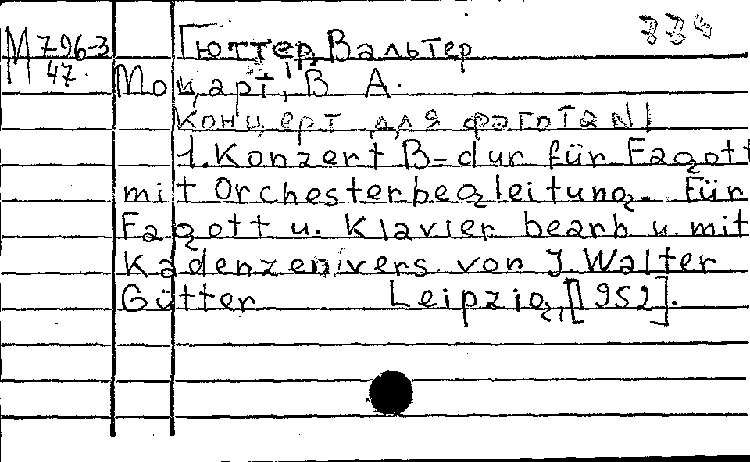 М 796-3 Гюттер, Вальтер
47. Моцарт, В А.
Концерт для фагота N1
1. Konzert B-dur für Fagott
mit Orchesterbegleitung. Für
Fagott u. Klavier bearb u. mit
Kadenzen vers von J. Walter
Gütter Leipzig, [1952].